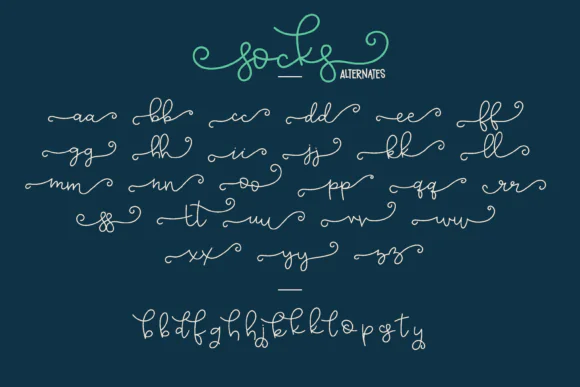 socks
ALTERNATES
aa bb cc dd ee ff
gg hh ii jj kk ll
mm nn oo pp qq rr
ss tt uu vv ww
xx yy zz
bbdfghhjkkkltopqsty